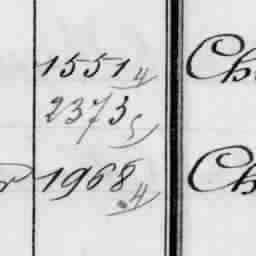 1551 4 Ch
2373 5
1968 4 Ch